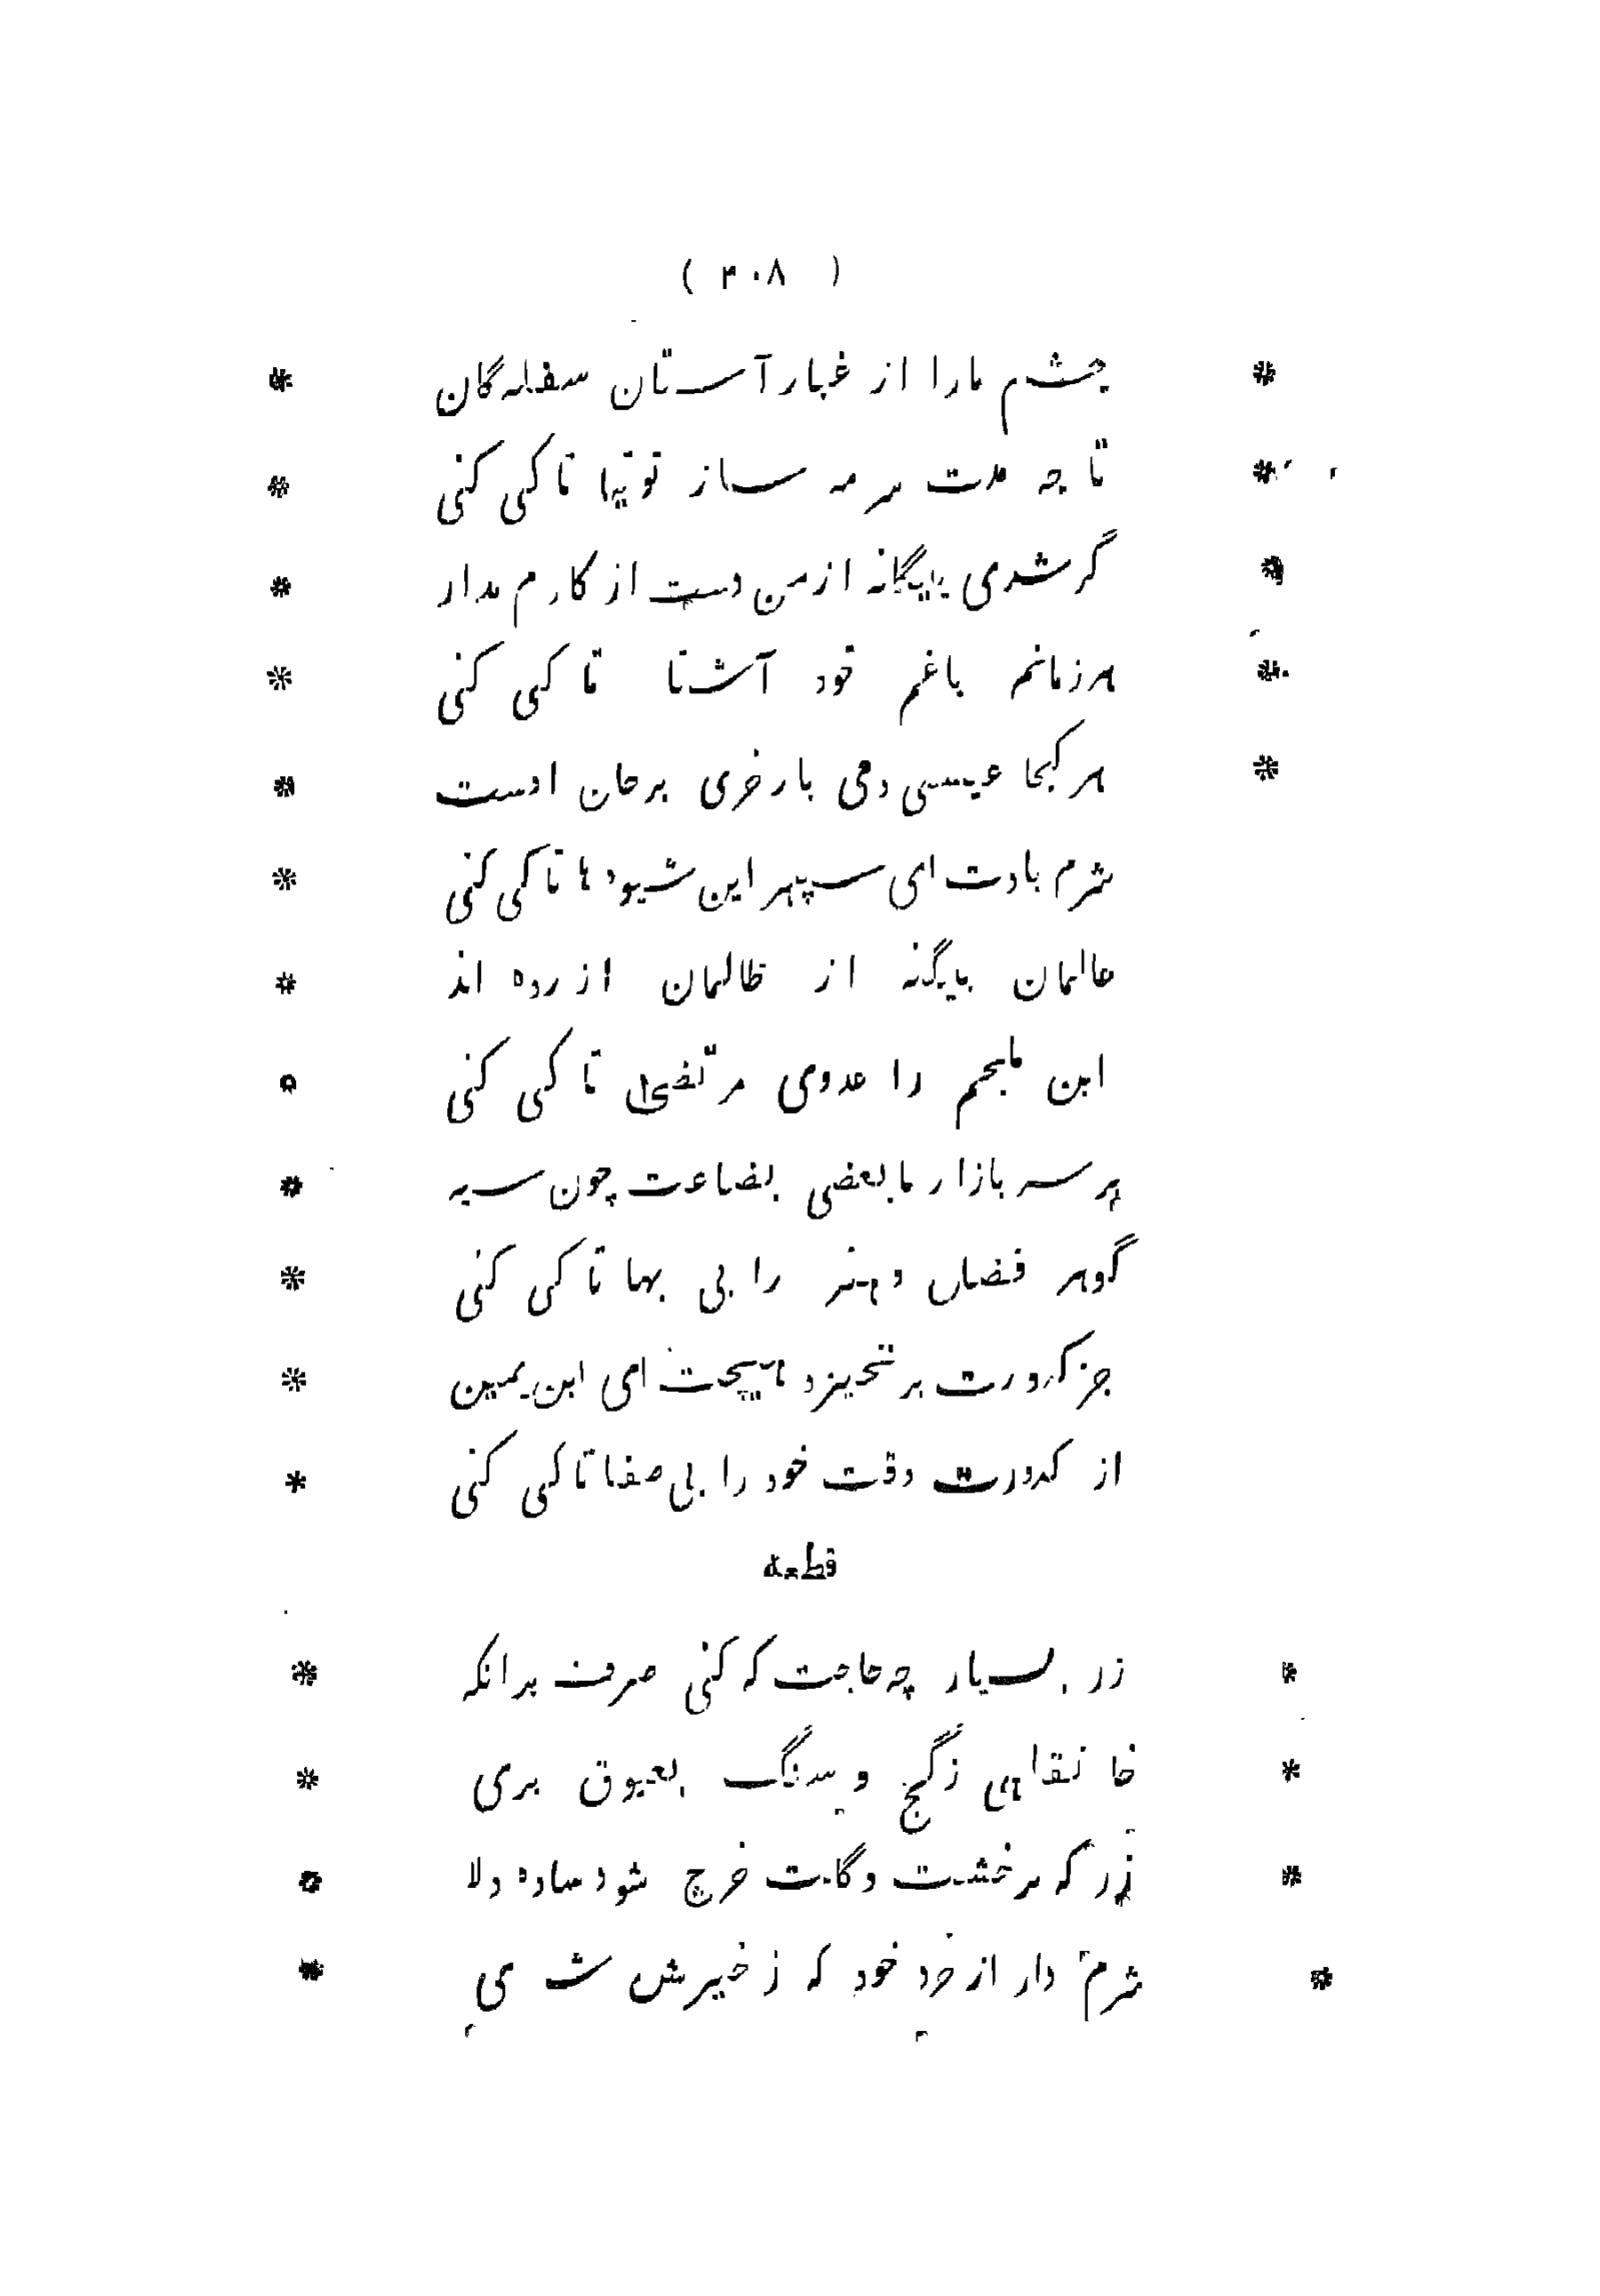 ( ۳۰۸ )
* چشم مارا از غبار آستان سفله‌گان *
* تا چه مدت سرمه ساز توتیها تا کی کنی *
* گر شدی بیگانه از من دست از کارم مدار *
* هر زمانم باغم خود آشنا تا کی کنی *
* هر کجا عیسی دمی بار خری بر جان اوست *
شرم بادت ای سپهر این شیوه‌ها تا کی کنی *
عالمان بیگنه از ظالمان ازرده اند *
ابن ملجم را عدوی مرتضی تا کی کنی *
بر سر بازار ما بعضی بضاعت چون سیه *
گوهر فضل و هنر را بی بها تا کی کنی *
جز کدورت بر نخیزد ای ابن یمین *
از کدورت وقت خود را بی صفا تا کی کنی *
قطعه
* زر بسیار چه حاجت که کنی صرف برانکه *
* خانقاهی ز گچ و سنگ بعیوق بری *
* زر که بر خشت و گلت خرج شود ساده دلا *
* شرم دار از خرد خود که ز خیرش *